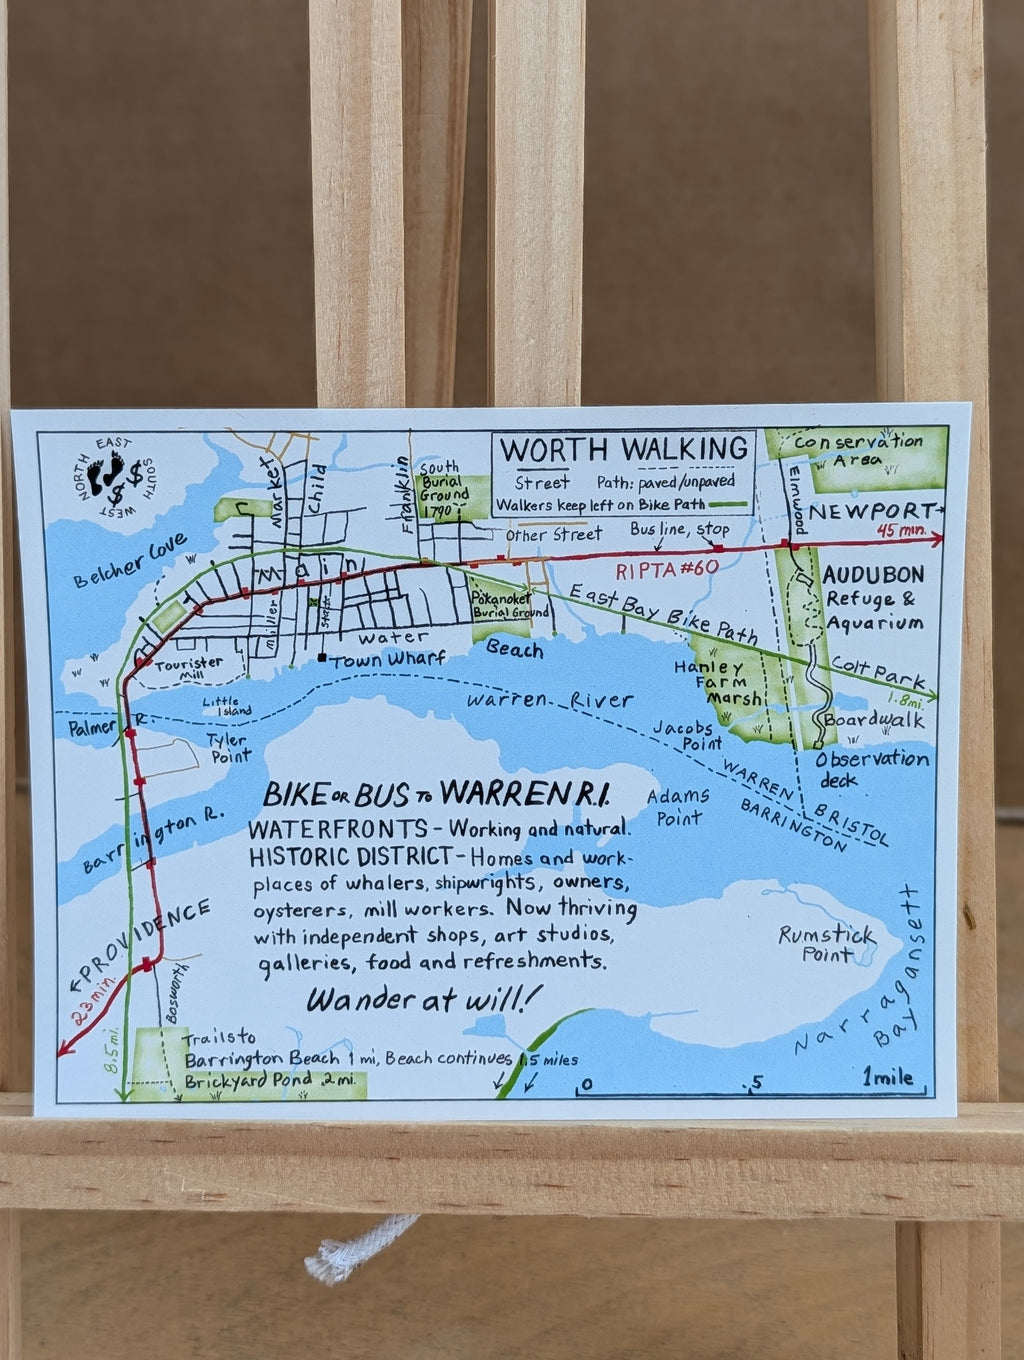 EAST
NORTH
SOUTH
WEST
$
$
WORTH WALKING
Street
Path: paved/unpaved
Walkers keep left on Bike Path
Other Street
Bus line, stop
RIPTA #60
Conservation
Area
Elmwood
NEWPORT
45 min.
Market
Child
Franklin
South
Burial
Ground
1790
Belcher Cove
Main
Miller
State
Water
Pokanoket
Burial Ground
Beach
East Bay Bike Path
AUDUBON
Refuge &
Aquarium
Colt Park
1.8 mi.
Tourister
Mill
Town Wharf
Hanley
Farm
Marsh
Little
Island
Warren River
Palmer R
Tyler
Point
Jacobs
Point
Boardwalk
Observation
deck
WARREN
BARRINGTON
BRISTOL
Adams
Point
BIKE OR BUS TO WARREN R.I.
WATERFRONTS - Working and natural.
HISTORIC DISTRICT - Homes and work-
places of whalers, shipwrights, owners,
oysterers, mill workers. Now thriving
with independent shops, art studios,
galleries, food and refreshments.
Wander at will!
Barrington R.
PROVIDENCE
23 min.
Bosworth
8.5 mi.
Rumstick
Point
Narragansett
Bay
Trails to
Barrington Beach 1 mi, Beach continues 1.5 miles
Brickyard Pond .2 mi.
0
.5
1 mile